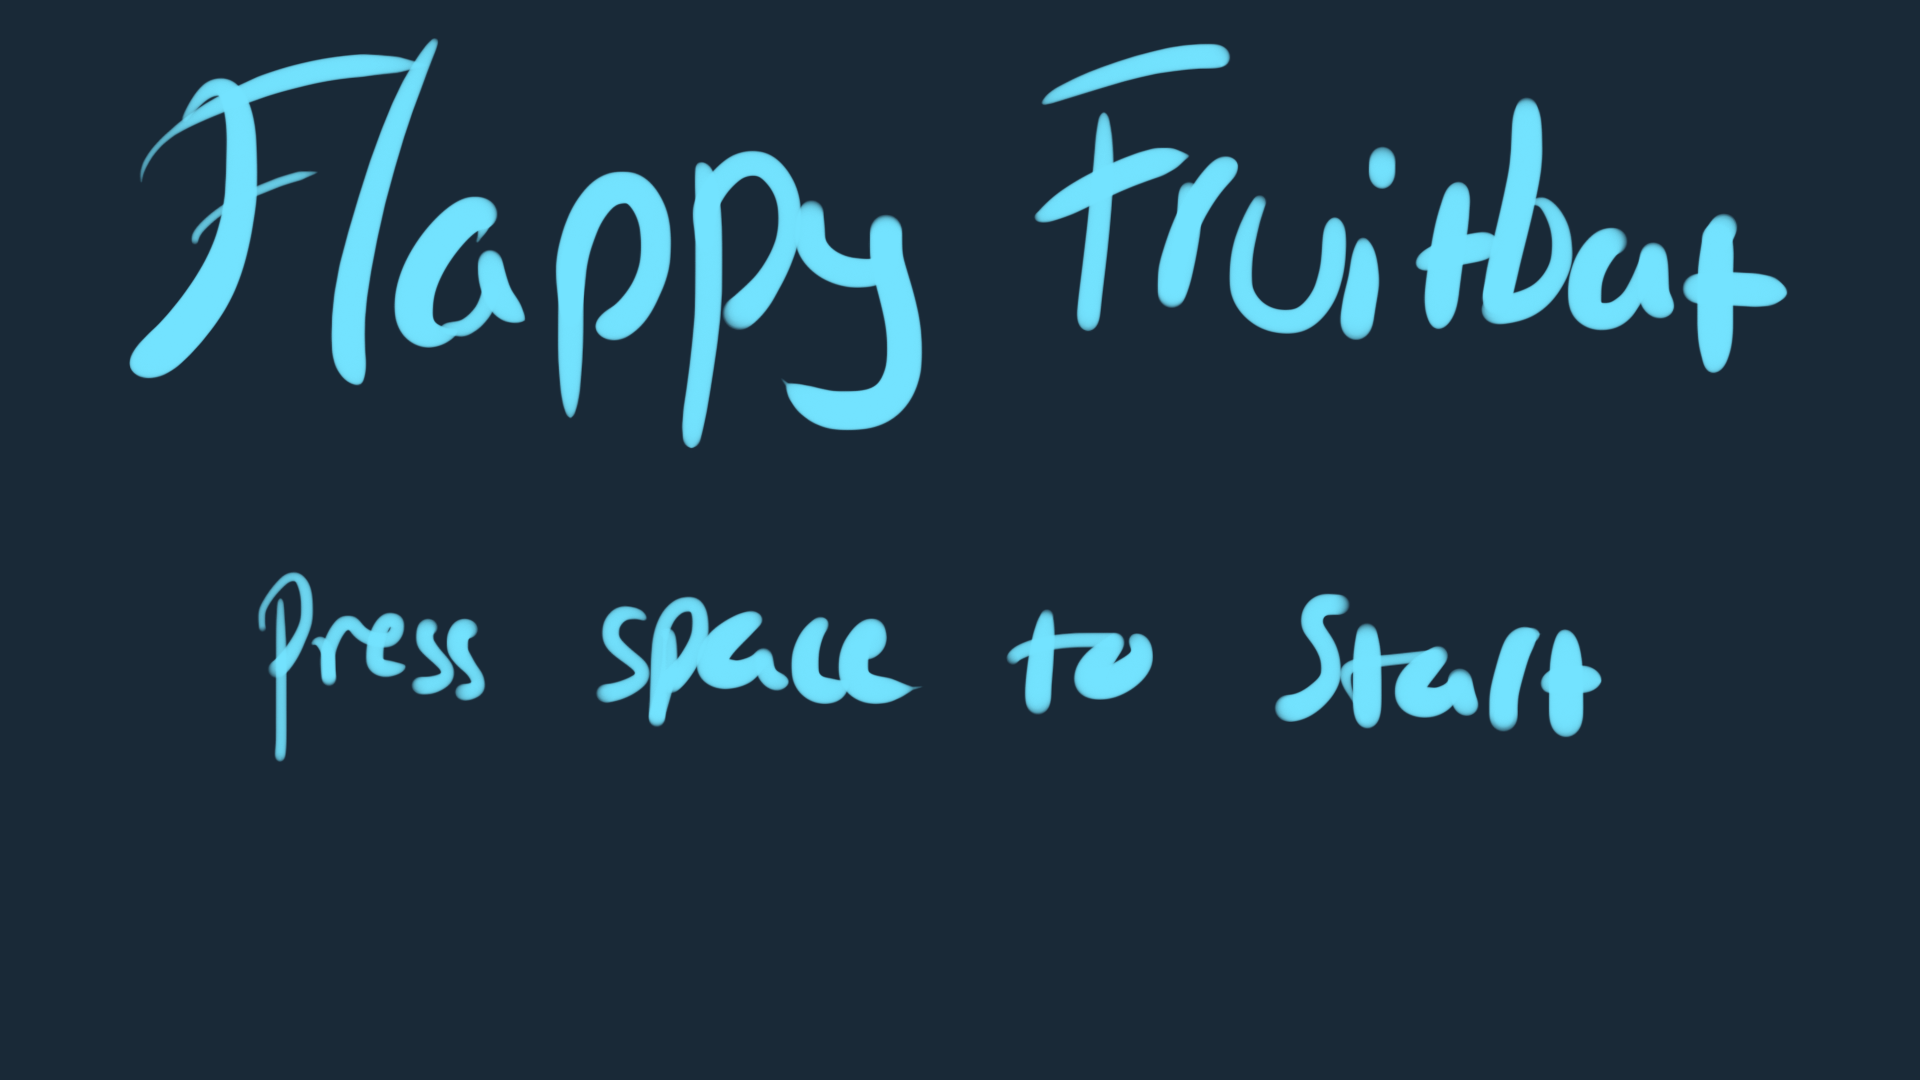 Flappy Fruitbat
Press space to Start